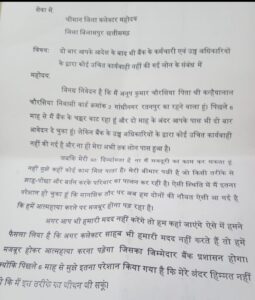 सेवा में
श्रीमान जिला कलेक्टर महोदय
जिला बिलासपुर छत्तीसगढ़
विषय: दो बार आपके आदेश के बाद भी बैंक के कर्मचारी एवं उच्च अधिकारियों
के द्वारा कोई उचित कार्यवाही नहीं की गई लोन के संबंध में
महोदय,
विनम्र निवेदन है कि मैं अनुप कुमार चौरसिया पिता श्री कन्हैयालाल
चौरसिया निवासी वार्ड क्रमांक 2 गांधीनगर रतनपुर का रहने वाला हूं। पिछले 6
माह से मैं बैंक के चक्कर काट रहा हूं और दो माह के अंदर आपके पास भी दो बार
आवेदन दे चुका हूं। लेकिन बैंक के उच्च अधिकारियों के द्वारा कोई उचित कार्यवाही
नहीं की गई है और ना ही मेरा अभी तक लोन पास हुआ है।
जबकि मेरी मां दिव्यांगता है ना मैं मजबूरी का काम कर सकता हूं
नहीं मुझे कोई काम मिल पाता है। मेरी श्रीमान पत्नी है जो किसी तरीके से
झाडू-पोछा और बर्तन करके परिवार का पालन कर रही है। ऐसी स्थिति में मैं इतना
परेशान हो चुका हूं कि मानसिक तौर पर अब हम दोनों की नौबत ऐसी आ गई है
कि हमें आत्महत्या करने पर मजबूर होना पड़ रहा है।
अगर आप भी हमारी मदद नहीं करेंगे तो हम कहां जाएंगे ऐसे में हमने
फैसला लिया है कि अगर कलेक्टर साहब भी हमारी मदद नहीं करते हैं तो हमें
मजबूर होकर आत्महत्या करना पड़ेगा जिसका जिम्मेदार बैंक प्रशासन होगा।
क्योंकि पिछले 6 माह से मुझे इतना परेशान किया गया है कि मेरे अंदर हिम्मत नहीं
है कि मैं इस तरीके का जीवन जी सकूं।